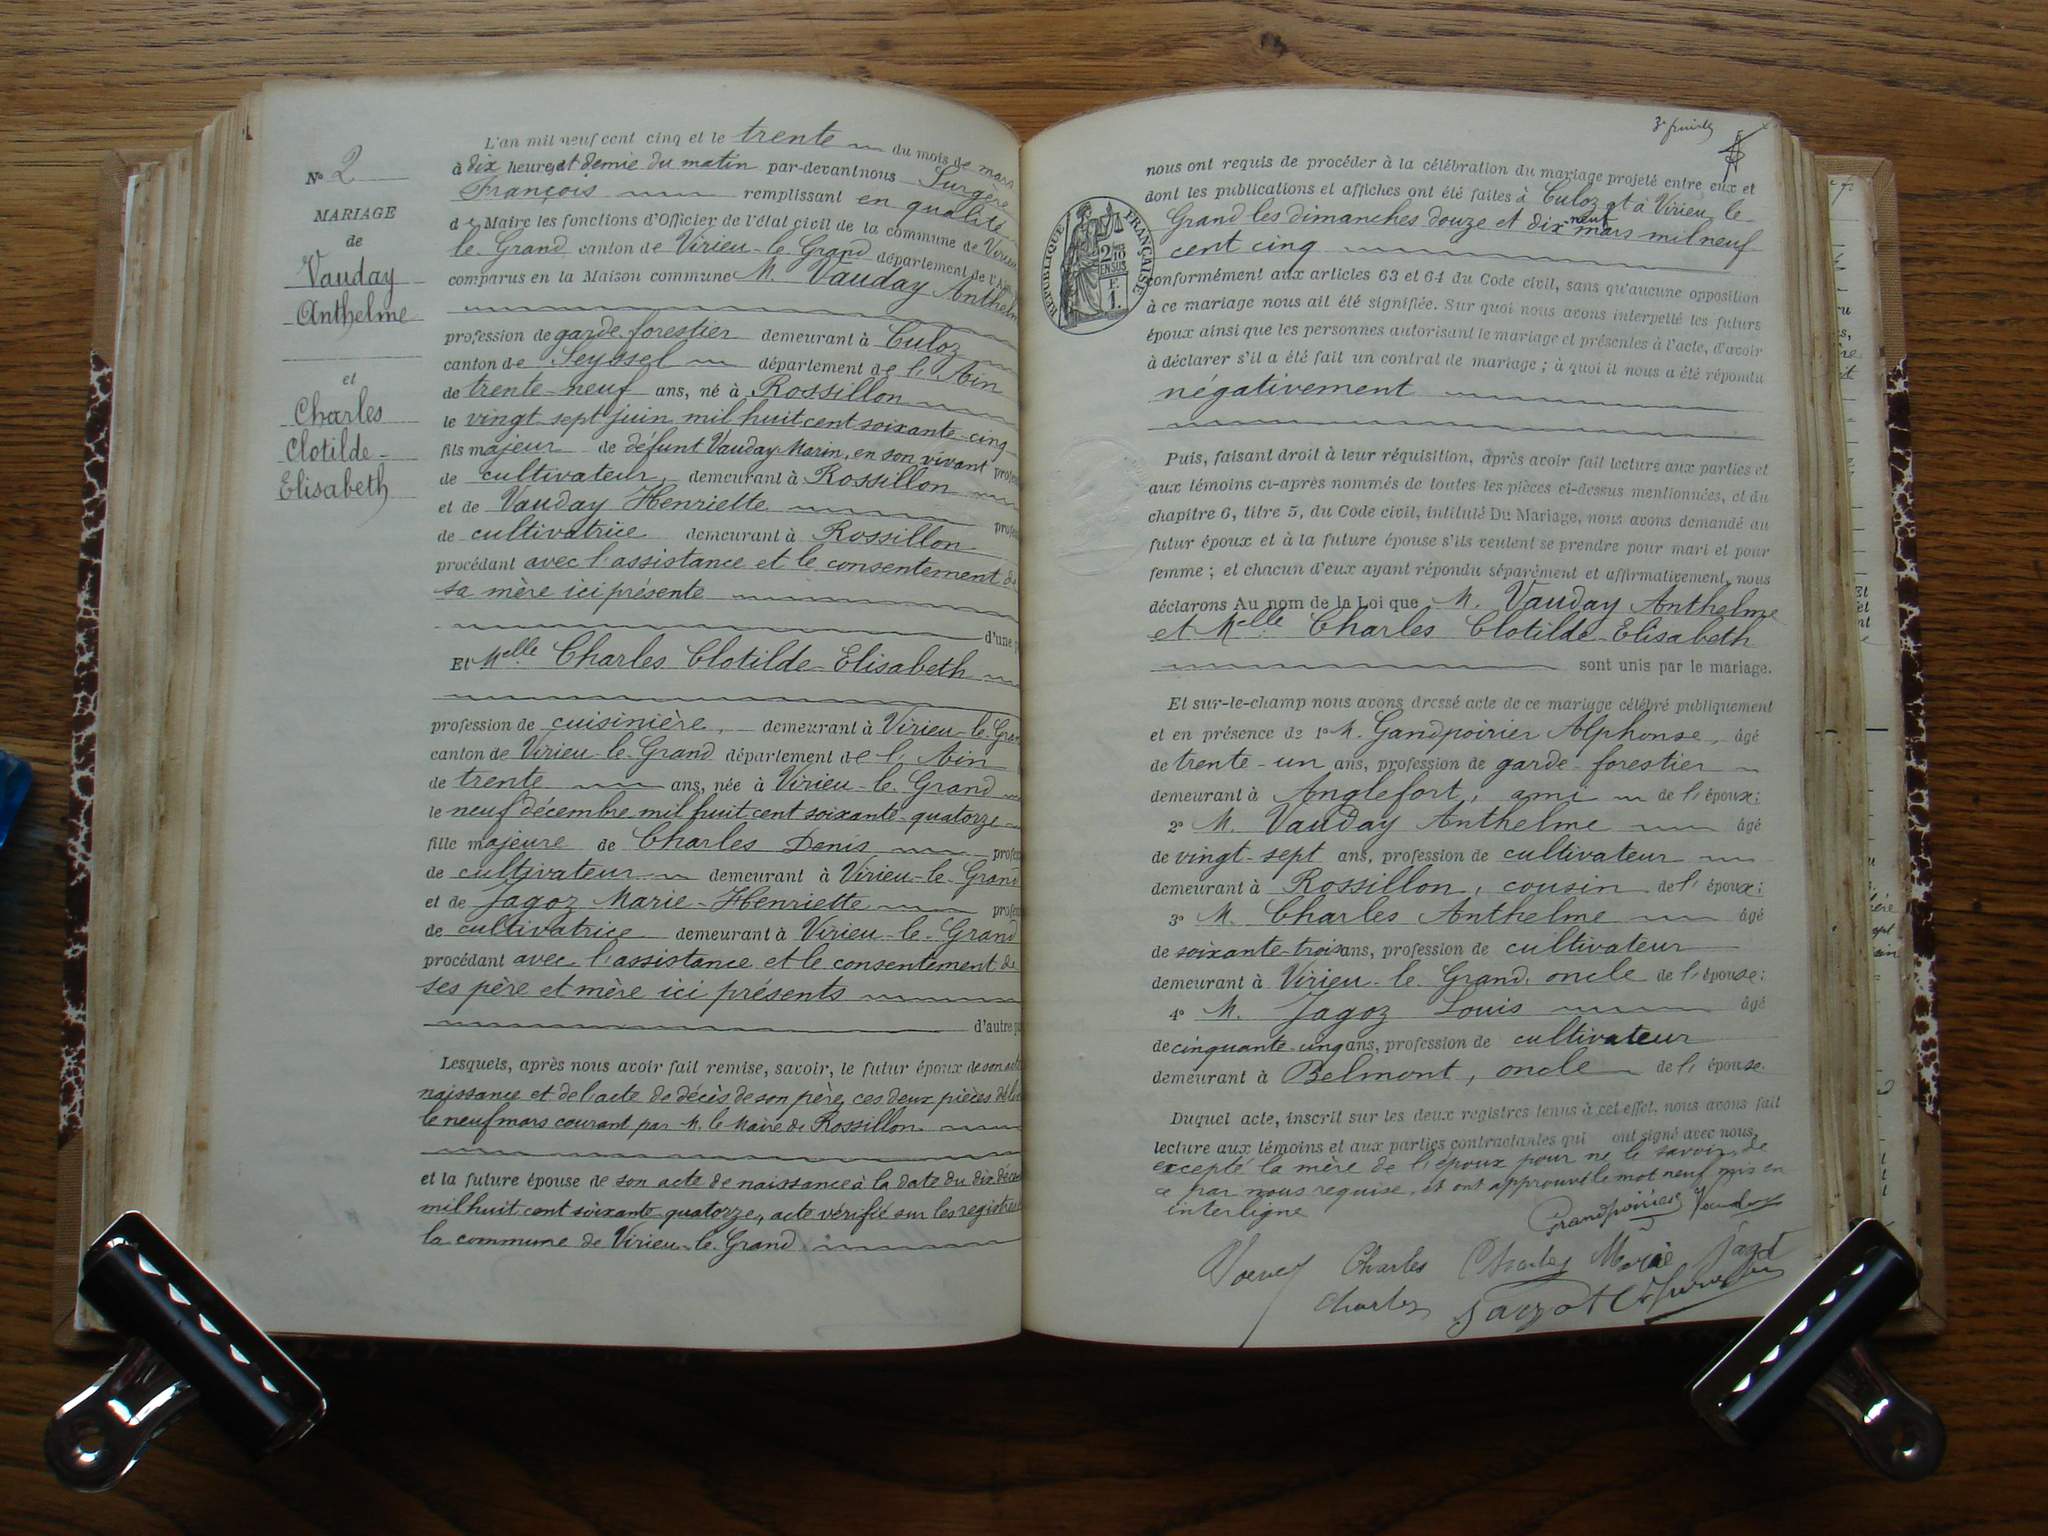 N° 2
MARIAGE
de
Vauday
Anthelme
et
Charles
Clotilde-
Elisabeth
L'an mil neuf cent cinq et le trente du mois de mars
à dix heures et demie du matin par-devant nous Surgère
François remplissant en qualité
de Maire les fonctions d'Officier de l'état civil de la commune de Virieu
le-Grand canton de Virieu-le-Grand département de l'Ain
comparus en la Maison commune M. Vauday Anthelm
profession de garde forestier demeurant à Culoz
canton de Seyssel département de l'Ain
de trente-neuf ans, né à Rossillon
le vingt-sept juin mil huit cent soixante-cinq
fils majeur de défunt Vauday Marin, en son vivant profes
de cultivateur, demeurant à Rossillon
et de Vauday Henriette profes
de cultivatrice demeurant à Rossillon
procédant avec l'assistance et le consentement de
sa mère ici présente
d'une p
Et Melle Charles Clotilde-Elisabeth
profession de cuisinière, demeurant à Virieu-le-Gran
canton de Virieu-le-Grand département de l'Ain
de trente ans, née à Virieu-le-Grand
le neuf décembre mil huit cent soixante-quatorze
fille majeure de Charles Denis profes
de cultivateur demeurant à Virieu-le-Grand
et de Jagoz Marie-Henriette profes
de cultivatrice demeurant à Virieu-le-Grand
procédant avec l'assistance et le consentement de
ses père et mère ici présents
d'autre p
Lesquels, après nous avoir fait remise, savoir, le futur époux de son acte
naissance et de l'acte de décès de son père, ces deux pièces déli
le neuf mars courant par M. le Maire de Rossillon
et la future épouse de son acte de naissance à la date du dix déce
mil huit cent soixante-quatorze, acte vérifié sur les registres
la commune de Virieu-le-Grand
RÉPUBLIQUE FRANÇAISE
2/10 EN SUS
F. 1.
nous ont requis de procéder à la célébration du mariage projeté entre eux et
dont les publications et affiches ont été faites à Culoz et à Virieu-le-
Grand les dimanches douze et dix-neuf mars mil neuf
cent cinq
conformément aux articles 63 et 64 du Code civil, sans qu'aucune opposition
à ce mariage nous ait été signifiée. Sur quoi nous avons interpellé les futurs
époux ainsi que les personnes autorisant le mariage et présentes à l'acte, d'avoir
à déclarer s'il a été fait un contrat de mariage ; à quoi il nous a été répondu
négativement
Puis, faisant droit à leur réquisition, après avoir fait lecture aux parties et
aux témoins ci-après nommés de toutes les pièces ci-dessus mentionnées, et du
chapitre 6, titre 5, du Code civil, intitulé Du Mariage, nous avons demandé au
futur époux et à la future épouse s'ils veulent se prendre pour mari et pour
femme ; et chacun d'eux ayant répondu séparément et affirmativement, nous
déclarons Au nom de la Loi que M. Vauday Anthelme
et Melle Charles Clotilde-Elisabeth
sont unis par le mariage.
Et sur-le-champ nous avons dressé acte de ce mariage célébré publiquement
et en présence de 1° M. Gandpoirier Alphonse, âgé
de trente-un ans, profession de garde-forestier
demeurant à Anglefort, ami de l'époux;
2° M. Vauday Anthelme âgé
de vingt-sept ans, profession de cultivateur
demeurant à Rossillon, cousin de l'époux;
3° M. Charles Anthelme âgé
de soixante-trois ans, profession de cultivateur
demeurant à Virieu-le-Grand, oncle de l'épouse;
4° M. Jagoz Louis âgé
de cinquante-ung ans, profession de cultivateur
demeurant à Belmont, oncle de l'épouse.
Duquel acte, inscrit sur les deux registres tenus à cet effet, nous avons fait
lecture aux témoins et aux parties contractantes qui ont signé avec nous,
excepté la mère de l'époux pour ne le savoir, de
ce par nous requise, et ont approuvé le mot neuf mis en
interligne
Grandpoirier Vauday
Charles Charles Marie
Charles